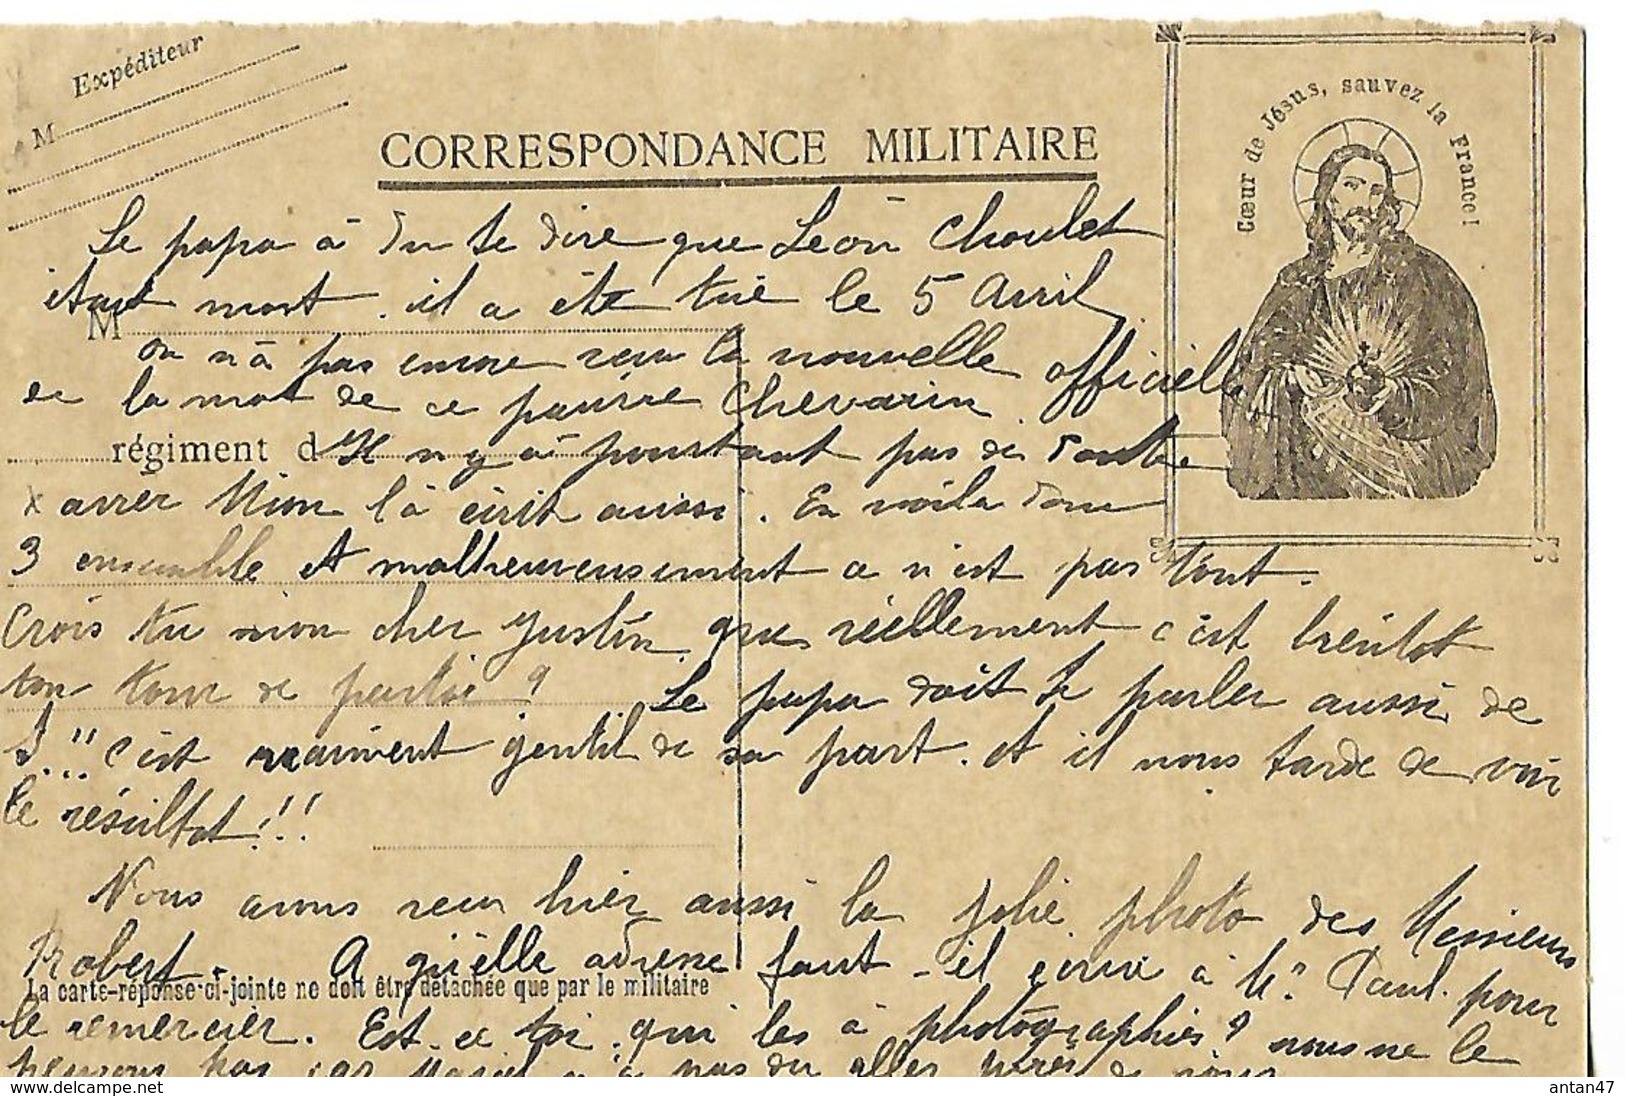 Expéditeur
M
CORRESPONDANCE MILITAIRE
Cœur de Jésus, sauvez la France!
Le papa à du te dire que Léon Choulet
était mort. il a été tué le 5 Avril
M
on n'à pas encore reçu la nouvelle officielle
de la mort de ce pauvre Chevarin.
régiment d
Il n'y à pourtant pas de doute
x avrer Mion l'à écrit aussi. En voila donc
3 ensemble et malheureusement ce n'est pas tout.
Crois tu mon cher Justin que réellement c'est bientot
ton tour de partir?
Le papa doit te parler aussi de
J...!! c'est vraiment gentil de sa part. et il nous tarde de voir
le résultat!!!
Nous avons reçu hier aussi la jolie photo des Messieurs
Robert. A quelle adresse faut-il écrire à Mr Paul. pour
La carte-réponse-ci-jointe ne doit être détachée que par le militaire
le remercier. Est-ce toi qui les à photographiés? nous ne le
pensons pas car n'a pas du aller près de vous
antan47